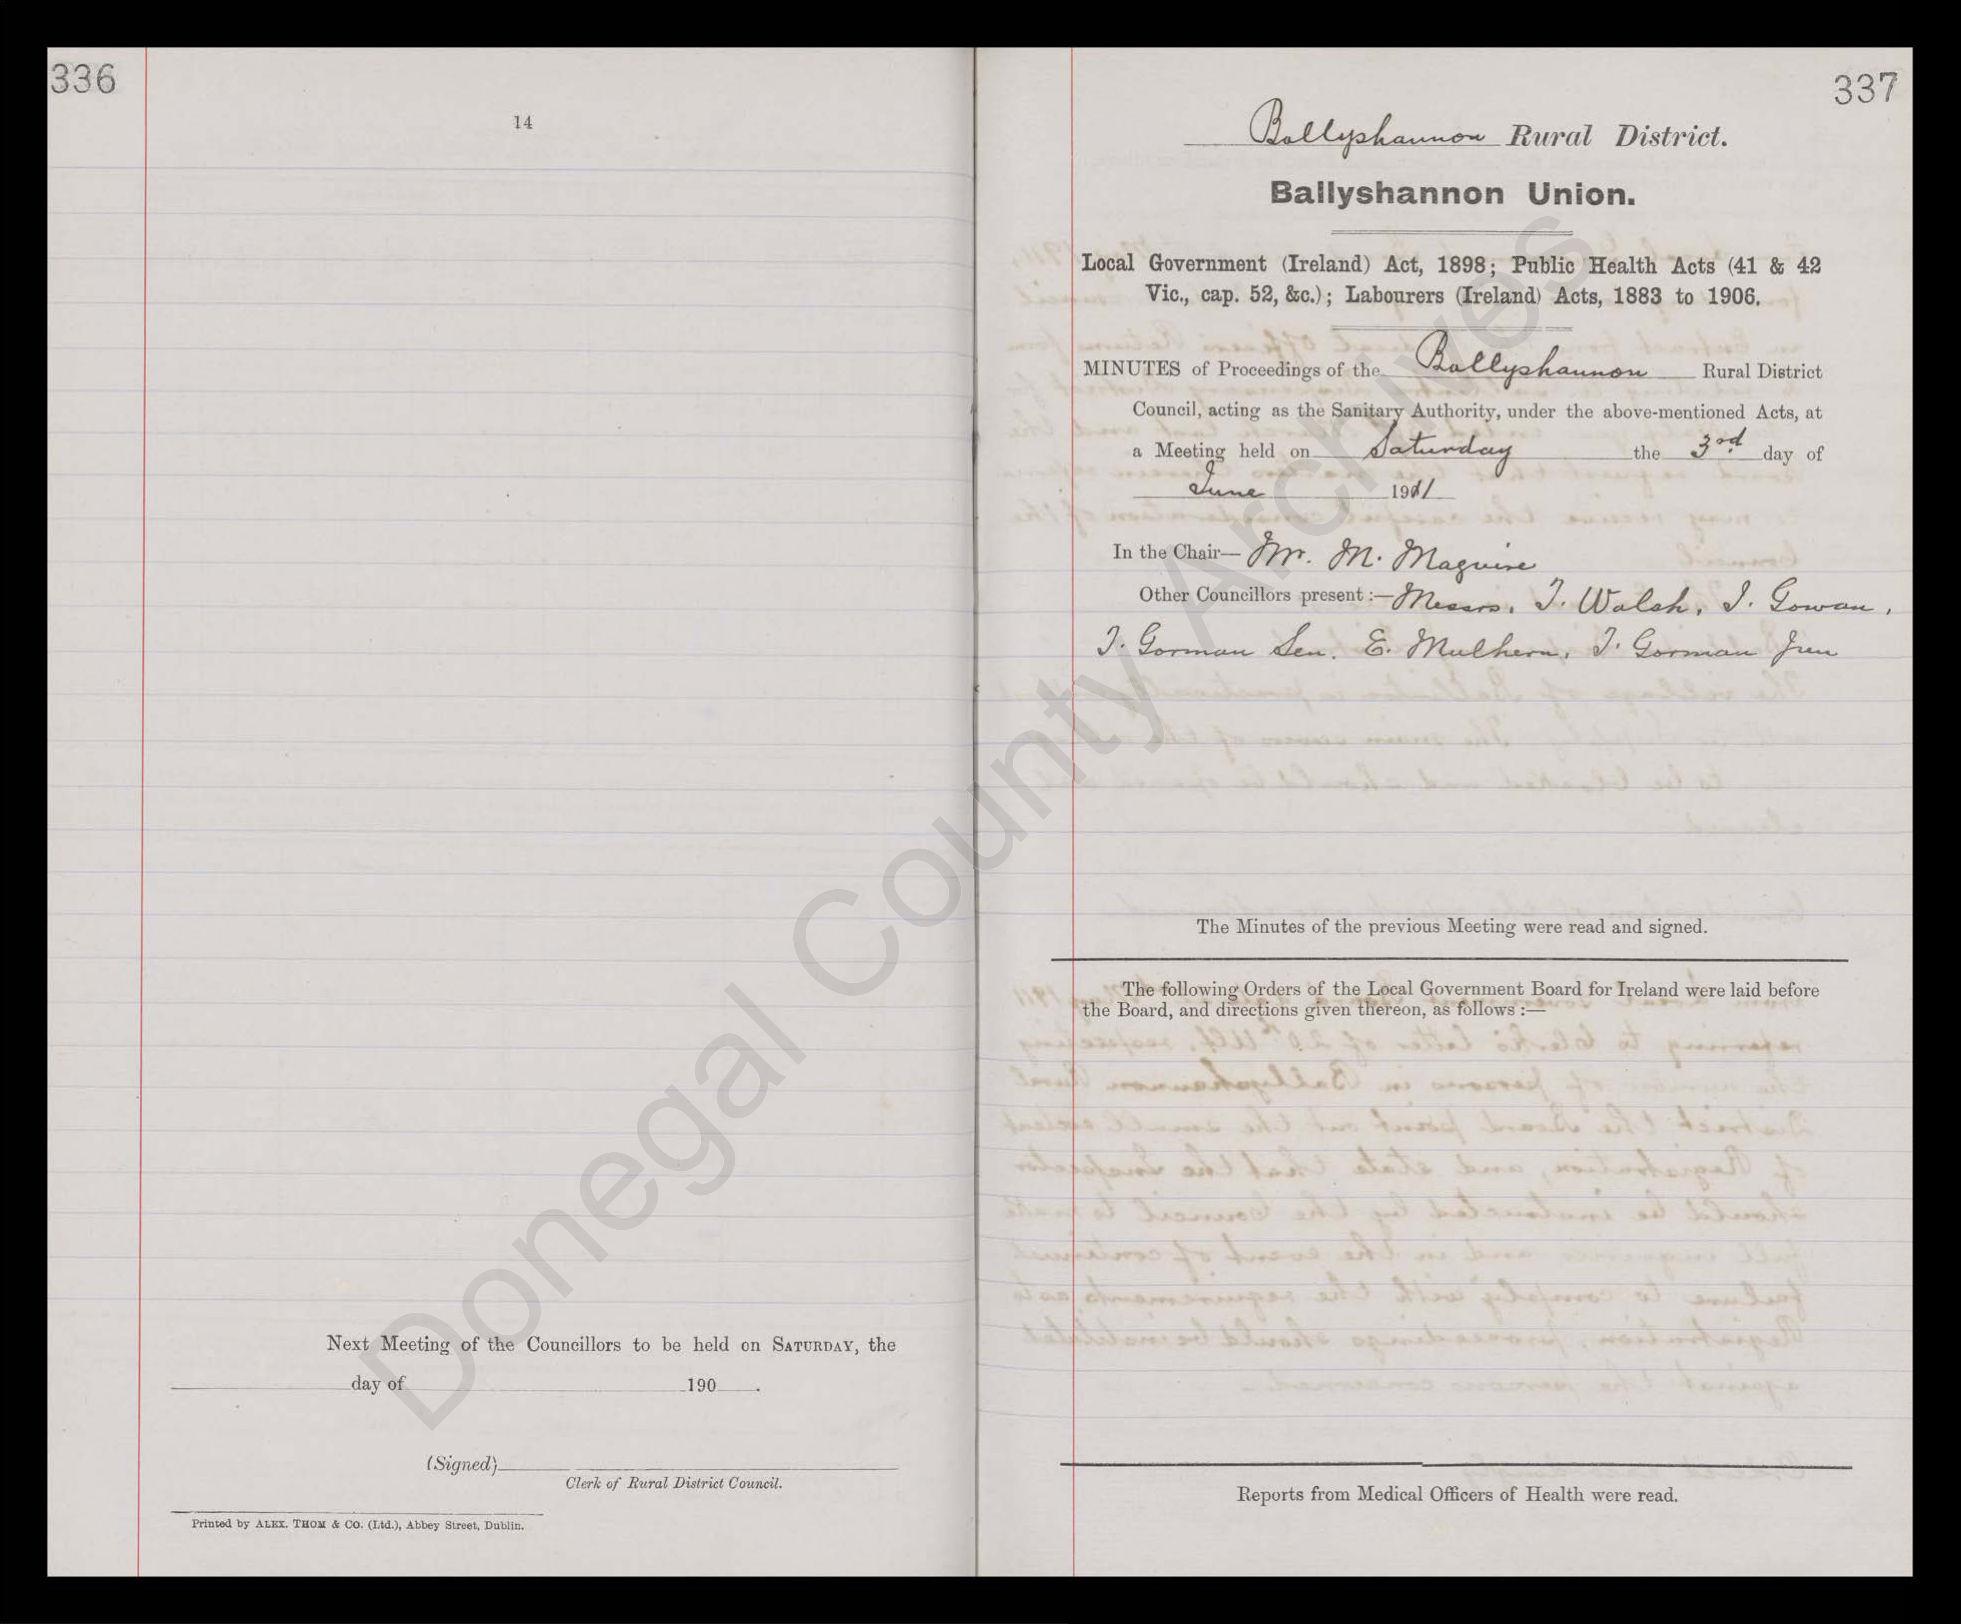 336
14
Next Meeting of the Councillors to be held on SATURDAY, the
day of 190 .
(Signed)
Clerk of Rural District Council.
Printed by ALEX. THOM & CO. (Ltd.), Abbey Street, Dublin.
337
Ballyshannon Rural District.
Ballyshannon Union.
Local Government (Ireland) Act, 1898; Public Health Acts (41 & 42
Vic., cap. 52, &c.); Labourers (Ireland) Acts, 1883 to 1906.
MINUTES of Proceedings of the Ballyshannon Rural District
Council, acting as the Sanitary Authority, under the above-mentioned Acts, at
a Meeting held on Saturday the 3rd day of
June 1911
In the Chair— Mr. M. Maguire
Other Councillors present :— Messrs. T. Walsh, J. Gowan,
T. Gorman Sen. E. Mulhern, T. Gorman Jun
The Minutes of the previous Meeting were read and signed.
The following Orders of the Local Government Board for Ireland were laid before
the Board, and directions given thereon, as follows :—
Reports from Medical Officers of Health were read.
Donegal County Archives